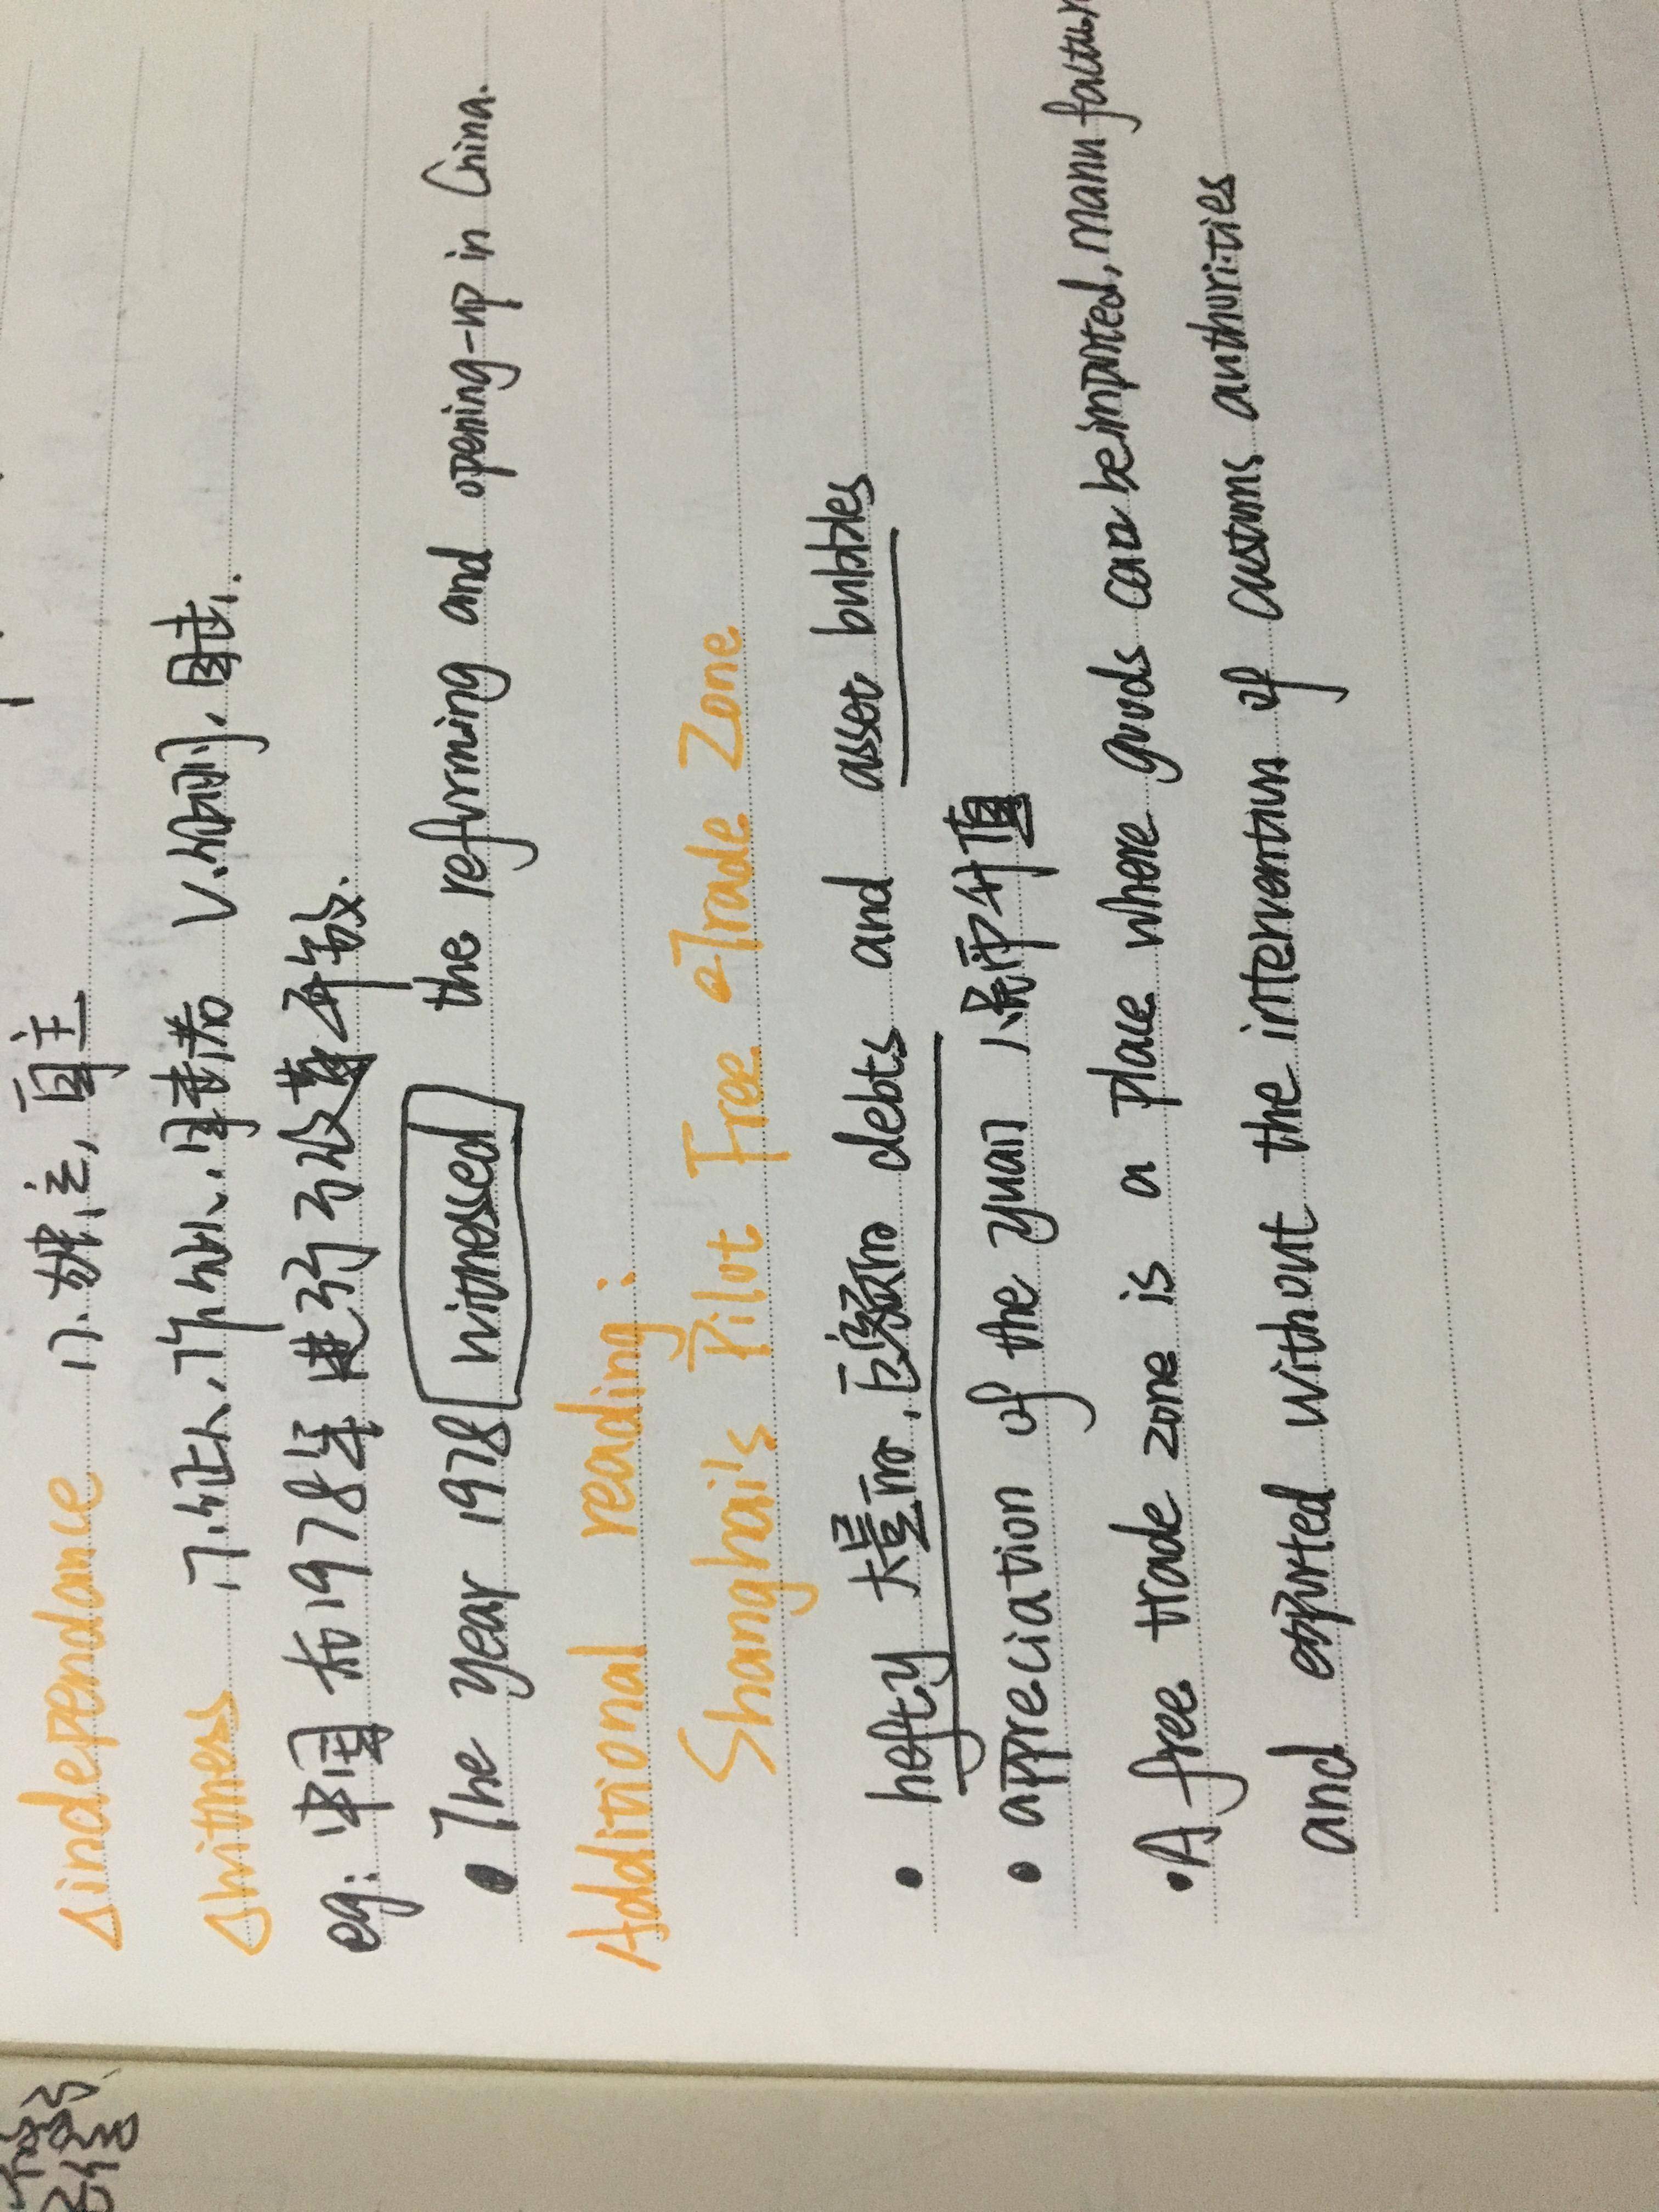 independance n.独立,自主
witness n.证人,作证人,目击者 v.证明,目击.
eg: 中国在1978年进行了改革开放.
• The year 1978 witnessed the reforming and opening-up in China.
Additional reading:
Shanghai's Pilot Free Trade Zone
• hefty 大量的,巨额的 debts and asset bubbles
• appreciation of the yuan 人民币升值
• A free trade zone is a place where goods can be imported, manufactur
and exported without the intervention of customs authorities